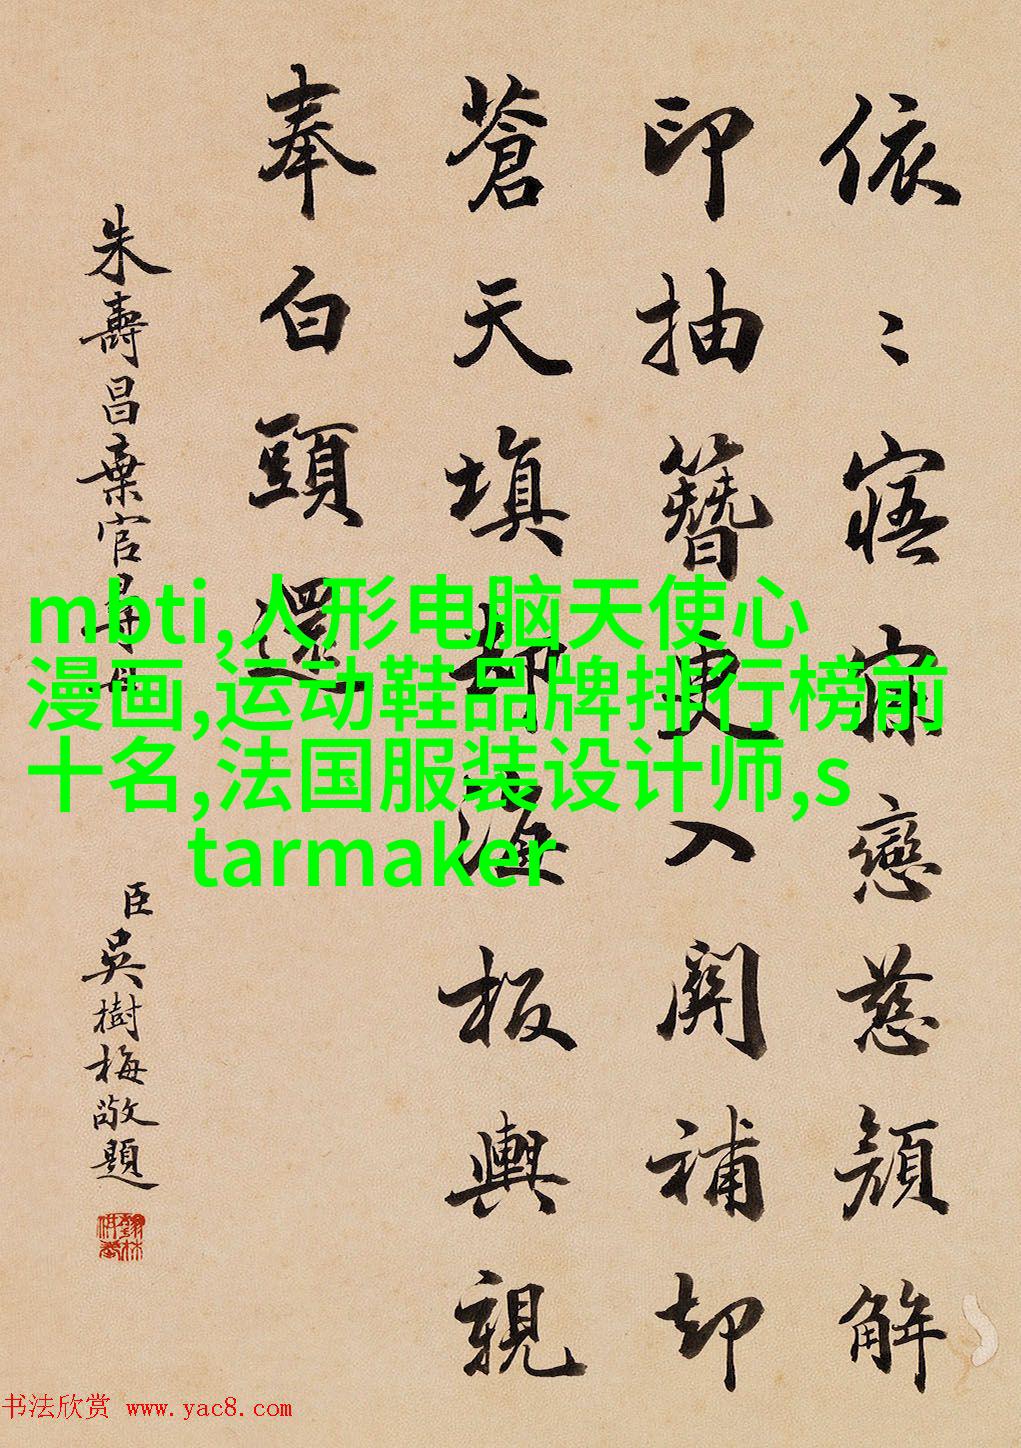 依〻寤寐戀慈顔解
印抽簪更入關補却
蒼天填板輿親
奉白頭還
朱壽昌棄官尋母
臣吳樹梅敬題
mbti,人形电脑天使心
漫画,运动鞋品牌排行榜前
十名,法国服装设计师,s
tarmaker
书法欣赏 www.yac8.com